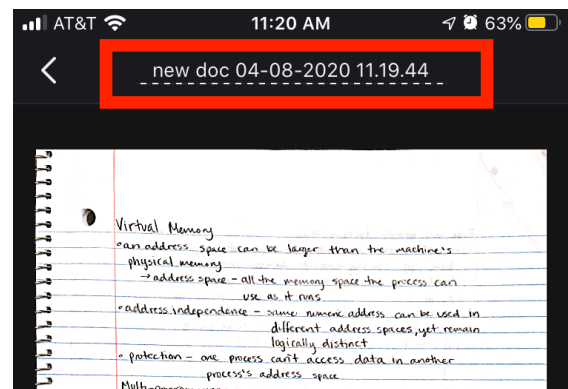 AT&T 11:20 AM 63%
new doc 04-08-2020 11.19.44
Virtual Memory
•an address space can be larger than the machine's
physical memory
→ address space - all the memory space the process can
use as it runs
•address independence - same numeric address can be used in
different address spaces, yet remain
logically distinct
• protection - one process can't access data in another
process's address space